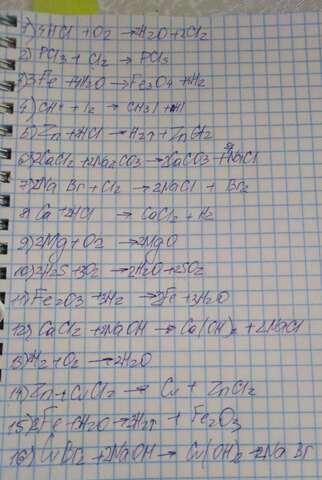 1) 4HCl + O2 → 2H2O + 2Cl2
2) PCl3 + Cl2 → PCl5
3) 3Fe + 4H2O → Fe3O4 + 4H2
4) CH4 + I2 → CH3I + HI
5) Zn + 2HCl → H2↑ + ZnCl2
6) 2CaCl2 + 2Na2CO3 → 2CaCO3 + 4NaCl
7) 2NaBr + Cl2 → 2NaCl + Br2
8) Ca + 2HCl → CaCl2 + H2
9) 2Mg + O2 → 2MgO
10) 2H2S + 3O2 → 2H2O + 2SO2
11) Fe2O3 + 3H2 → 2Fe + 3H2O
12) CaCl2 + 2NaOH → Ca(OH)2 + 2NaCl
13) 2H2 + O2 → 2H2O
14) Zn + CuCl2 → Cu + ZnCl2
15) 2Fe + 6H2O → 3H2↑ + Fe2O3
16) CuBr2 + 2NaOH → Cu(OH)2 + 2NaBr